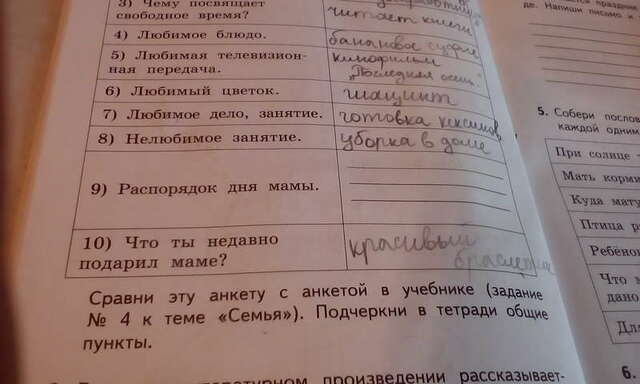 3) Чему посвящает
свободное время?
читает книги
4) Любимое блюдо.
банановое суфле
5) Любимая телевизион-
ная передача.
кинофильм
"Последняя осень"
6) Любимый цветок.
гиацинт
7) Любимое дело, занятие.
готовка кексиков
8) Нелюбимое занятие.
уборка в доме
9) Распорядок дня мамы.
10) Что ты недавно
подарил маме?
красивый
Сравни эту анкету с анкетой в учебнике (задание
№ 4 к теме «Семья»). Подчеркни в тетради общие
пункты.
произведении рассказывает-
де. Напиши письмо и
5. Собери посло
каждой одним
При солнце
Мать корми
Куда мату
Птица р
Ребёно
Что м
дано
Дл
6.